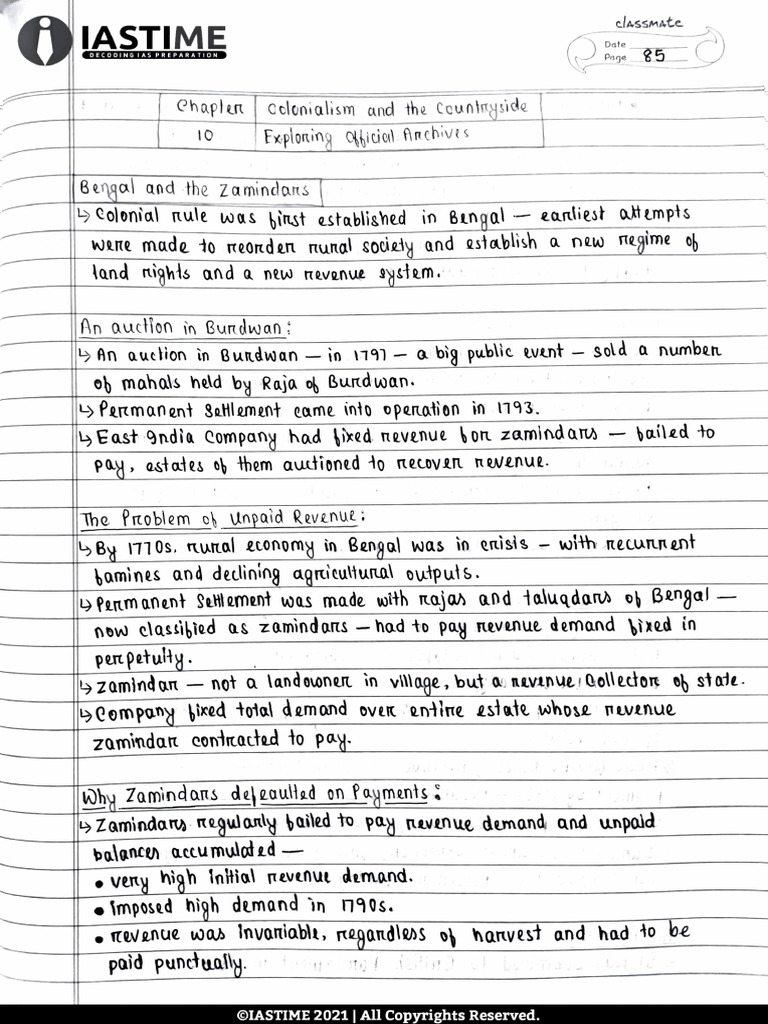 IASTIME
DECODING IAS PREPARATION
classmate
Date
Page 85
Chapter Colonialism and the Countryside
10 Exploring Official Archives
Bengal and the Zamindars
↳ Colonial rule was first established in Bengal — earliest attempts
were made to reorder rural society and establish a new regime of
land rights and a new revenue system.
An auction in Burdwan:
↳ An auction in Burdwan — in 1797 — a big public event — sold a number
of mahals held by Raja of Burdwan.
↳ Permanent Settlement came into operation in 1793.
↳ East India Company had fixed revenue for zamindars — failed to
pay, estates of them auctioned to recover revenue.
The Problem of Unpaid Revenue:
↳ By 1770s, rural economy in Bengal was in crisis — with recurrent
famines and declining agricultural outputs.
↳ Permanent Settlement was made with rajas and taluqdars of Bengal —
now classified as zamindars — had to pay revenue demand fixed in
perpetuity.
↳ zamindar — not a landowner in village, but a revenue Collector of state.
↳ Company fixed total demand over entire estate whose revenue
zamindar contracted to pay.
Why Zamindars defeaulted on Payments:
↳ Zamindars regularly failed to pay revenue demand and unpaid
balances accumulated —
• very high initial revenue demand.
• imposed high demand in 1790s.
• revenue was invariable, regardless of harvest and had to be
paid punctually.
©IASTIME 2021 | All Copyrights Reserved.